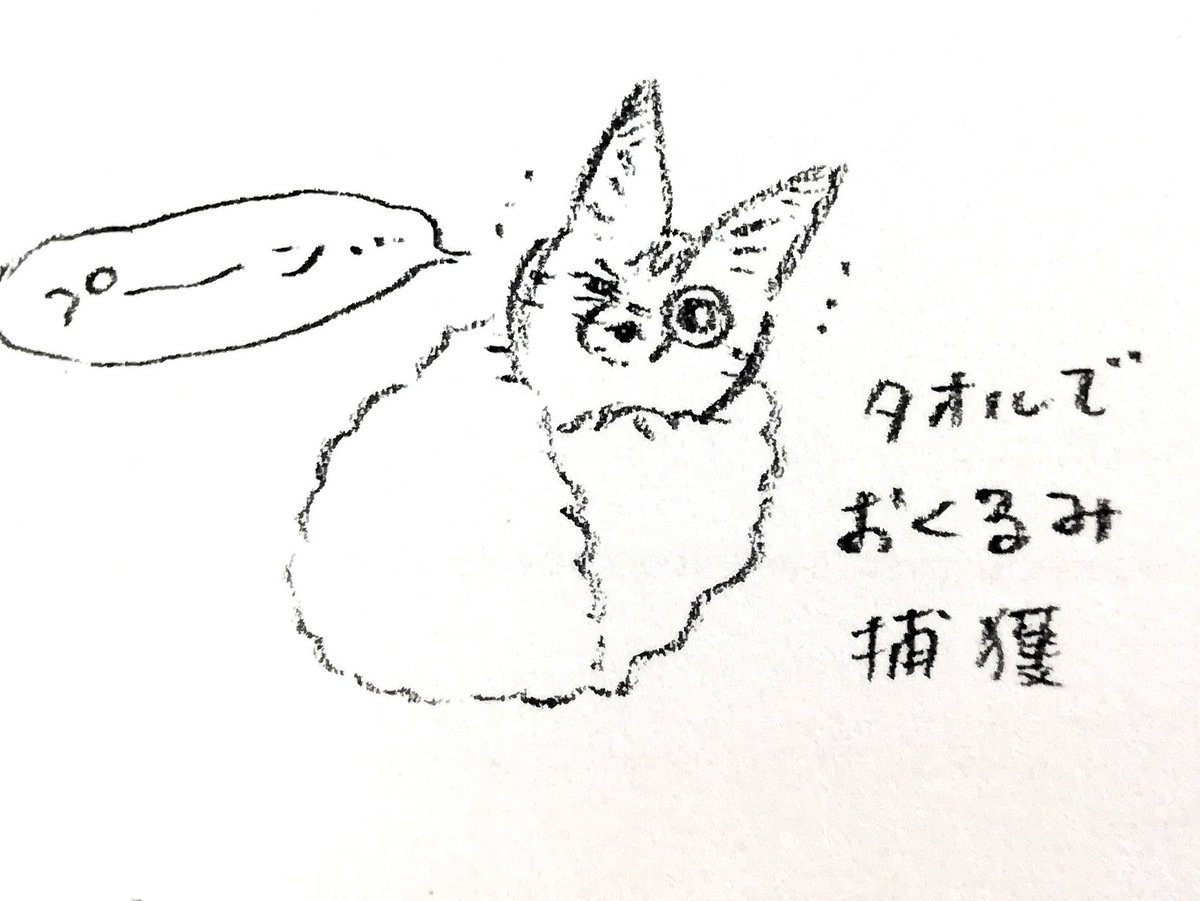 プーン…
タオルで
おくるみ
捕獲